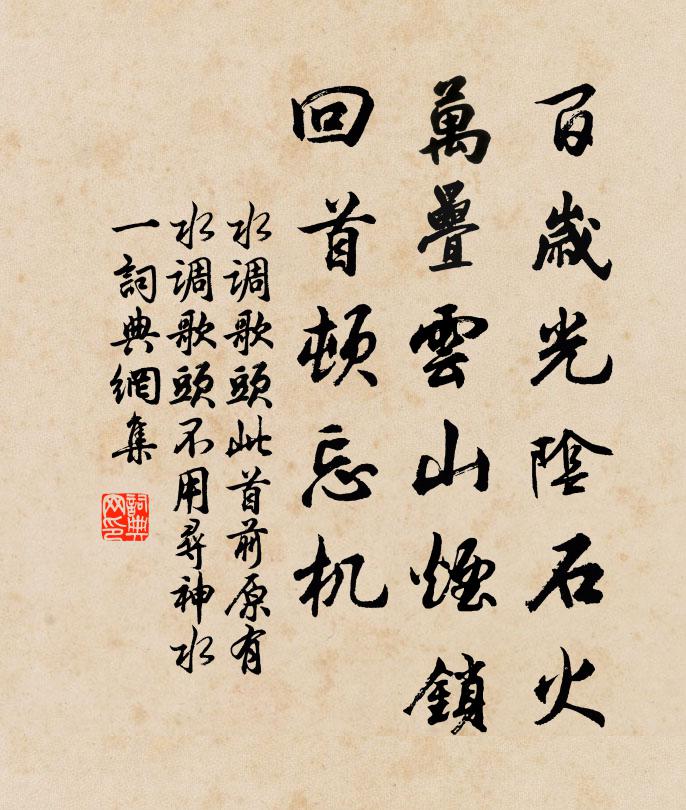 百歲光陰石火
萬疊雲山煙鎖
回首頓忘机
水调歌頭此首前原有
水调歌頭不用尋神水
一詞典網集
詞典
网印